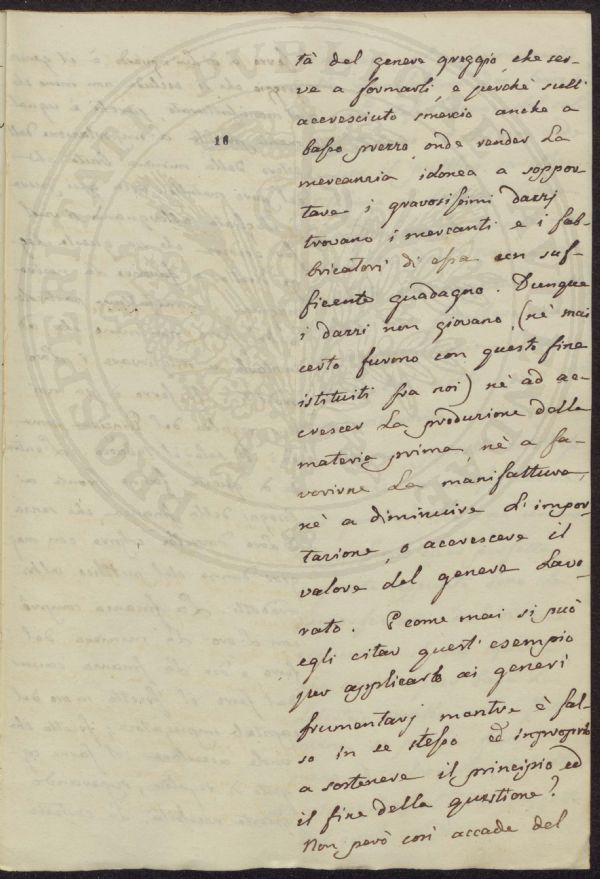 18
tà del genere greggio, che ser-
ve a formarli, e perchè sull'
accresciuto smercio anche a
basso prezzo, onde render la
mercanzia idonea a soppor-
tare i gravosissimi dazzj
trovano i mercanti e i fab-
bricatori di essa un suf-
ficente guadagno. Dunque
i dazzi non giovano, (nè mai
certo furono con questo fine
istituiti fra noi) nè ad ac-
crescer la produzione della
materia prima, nè a fa-
vorirne la manifattura,
nè a diminuire l'impor-
tazione, o accrescere il
valore del genere lavo-
rato. E come mai si può
egli citar quest'esempio
per applicarlo ai generi
frumentarj mentre è fal-
so in se stesso ed improprio
a sostenere il principio, ed
il fine della questione?
Non però così accade del